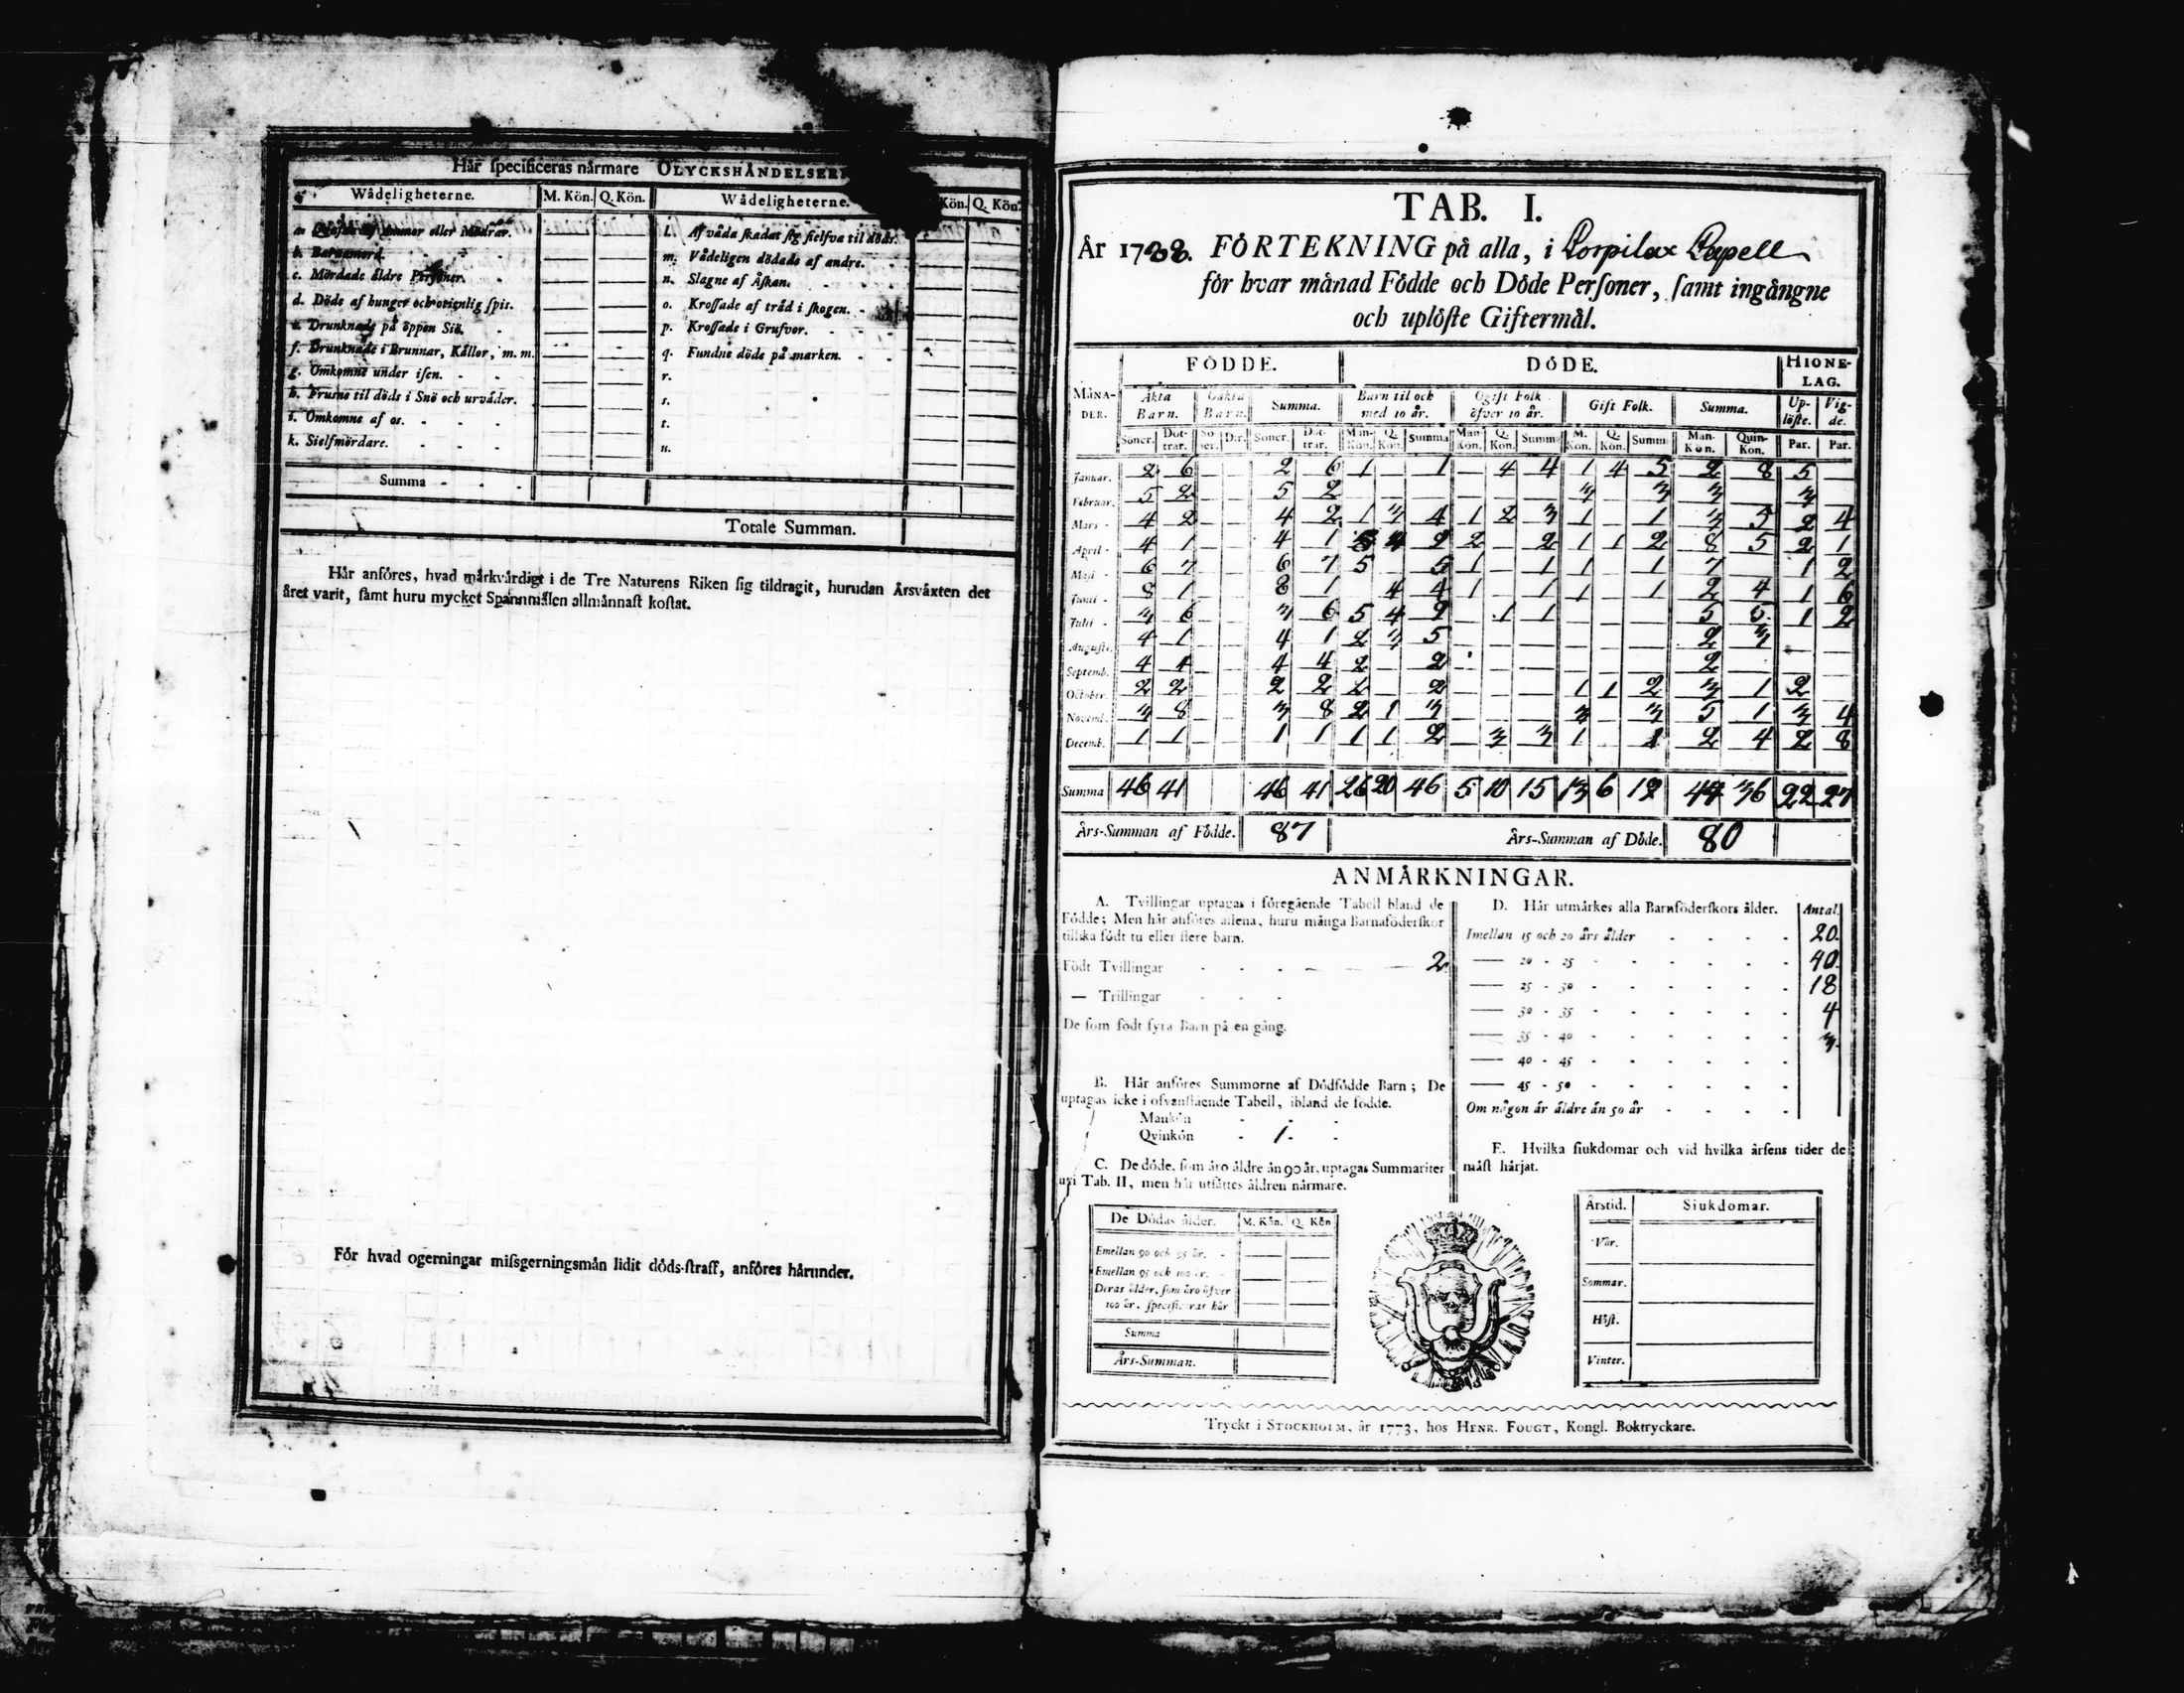 Här ſpecificeras närmare OLYCKSHÄNDELSER
Wådeligheterne. M. Kön. Q. Kön. Wådeligheterne. Kön. Q. Kön.
a. eller Mödrar. l. Af våda ſkadat ſig ſielfva til döds.
b. Barnamord. m. Vådeligen dödade af andre.
c. Mördade äldre Perſoner. n. Slagne af Åſkan.
d. Döde af hunger och otienlig ſpis. o. Kroſſade af träd i ſkogen.
e. Drunknade på öppen Siö. p. Kroſſade i Grufvor.
f. Drunknade i Brunnar, Källor, m. m. q. Fundne döde på marken.
g. Omkomne under iſen. r.
h. Fruſne til döds i Snö och urväder. s.
i. Omkomne af os. t.
k. Sielfmördare. u.
Summa
Totale Summan.
Här anföres, hvad märkvärdigt i de Tre Naturens Riken ſig tildragit, hurudan Årsväxten det
året varit, ſamt huru mycket Spannmålen allmännaſt koſtat.
För hvad ogerningar miſsgerningsmän lidit döds-ſtraff, anföres härunder.
TAB. I.
År 1788. FÖRTEKNING på alla, i Lospilax Capell
för hvar månad Födde och Döde Perſoner, ſamt ingångne
och uplöſte Giftermål.
MÅNA-DER. FÖDDE. DÖDE. HIONE-LAG.
Äkta Barn. Oäkta Barn. Summa. Barn til och med 10 år. Ogift Folk öfver 10 år. Gift Folk. Summa. Up-löſte. Vig-de.
Söner. Döt-trar. Sö ner. Dr. Söner. Döt-trar. Man-Kön. Q. Kön. Summa Man-Kön. Q. Kön. Summa M. Kön. Q. Kön. Summ Man-Kön. Quin-Kön. Par. Par.
Januar. 2 6 2 6 1 — 1 — 4 4 1 4 5 2 8 5 —
Februar. 5 2 5 2 — — — — — — 3 — 3 3 — 3 —
Mars 4 2 4 2 1 3 4 1 2 3 1 — 1 3 5 2 4
April 4 1 4 1 5 4 9 2 — 2 1 1 2 8 5 2 1
Maji 6 7 6 7 5 — 5 1 — 1 1 — 1 7 — 1 2
Junii 8 1 8 1 — 4 4 1 — 1 1 — 1 2 4 1 6
Julii 3 6 3 6 5 4 9 — 1 1 — — — 5 5 1 2
Auguſti. 4 1 4 1 2 3 5 — — — — — — 2 3 — —
Septemb. 4 4 4 4 2 — 2 — — — — — — 2 — — —
October. 2 2 2 2 2 — 2 — — — 1 1 2 3 1 2 —
Novemb. 3 8 3 8 2 1 3 — — — 3 — 3 5 1 3 4
Decemb. 1 1 1 1 1 1 2 — 3 3 1 1 2 4 2 8
Summa 46 41 46 41 26 20 46 5 10 15 13 6 19 44 36 22 27
Års-Summan af Födde. 87 Års-Summan af Döde. 80
ANMÄRKNINGAR.
A. Tvillingar uptagas i föregående Tabell bland de
Födde; Men här anföres allena, huru många Barnaföderſkor
tillika födt tu eller flere barn.
Födt Tvillingar 2
— Trillingar
De ſom födt fyra Barn på en gång.
B. Här anföres Summorne af Dödfödde Barn; De
uptagas icke i ofvanſtående Tabell, ibland de födde.
Mankön
Qvinkön 1.
C. De döde, ſom äro äldre än 90 år, uptagas Summariter
uti Tab. II, men här utſättes åldren närmare.
De Dödas ålder. M. Kön. Q. Kön
Emellan 90 och 95 år.
Emellan 95 och 100 år.
Deras ålder, ſom äro öfver
100 år, ſpecificeras här
Summa
Års-Summan.
D. Här utmärkes alla Barnföderſkors ålder. Antal.
Imellan 15 och 20 års ålder 20.
— 20 - 25 40.
— 25 - 30 18
— 30 - 35 4
— 35 - 40 3.
— 40 - 45
— 45 - 50
Om någon är äldre än 50 år
E. Hvilka ſiukdomar och vid hvilka årſens tider de
mäſt härjat.
Årstid. Siukdomar.
Vår.
Sommar.
Höſt.
Vinter.
Tryckt i STOCKHOLM, år 1773, hos HENR. FOUGT, Kongl. Boktryckare.